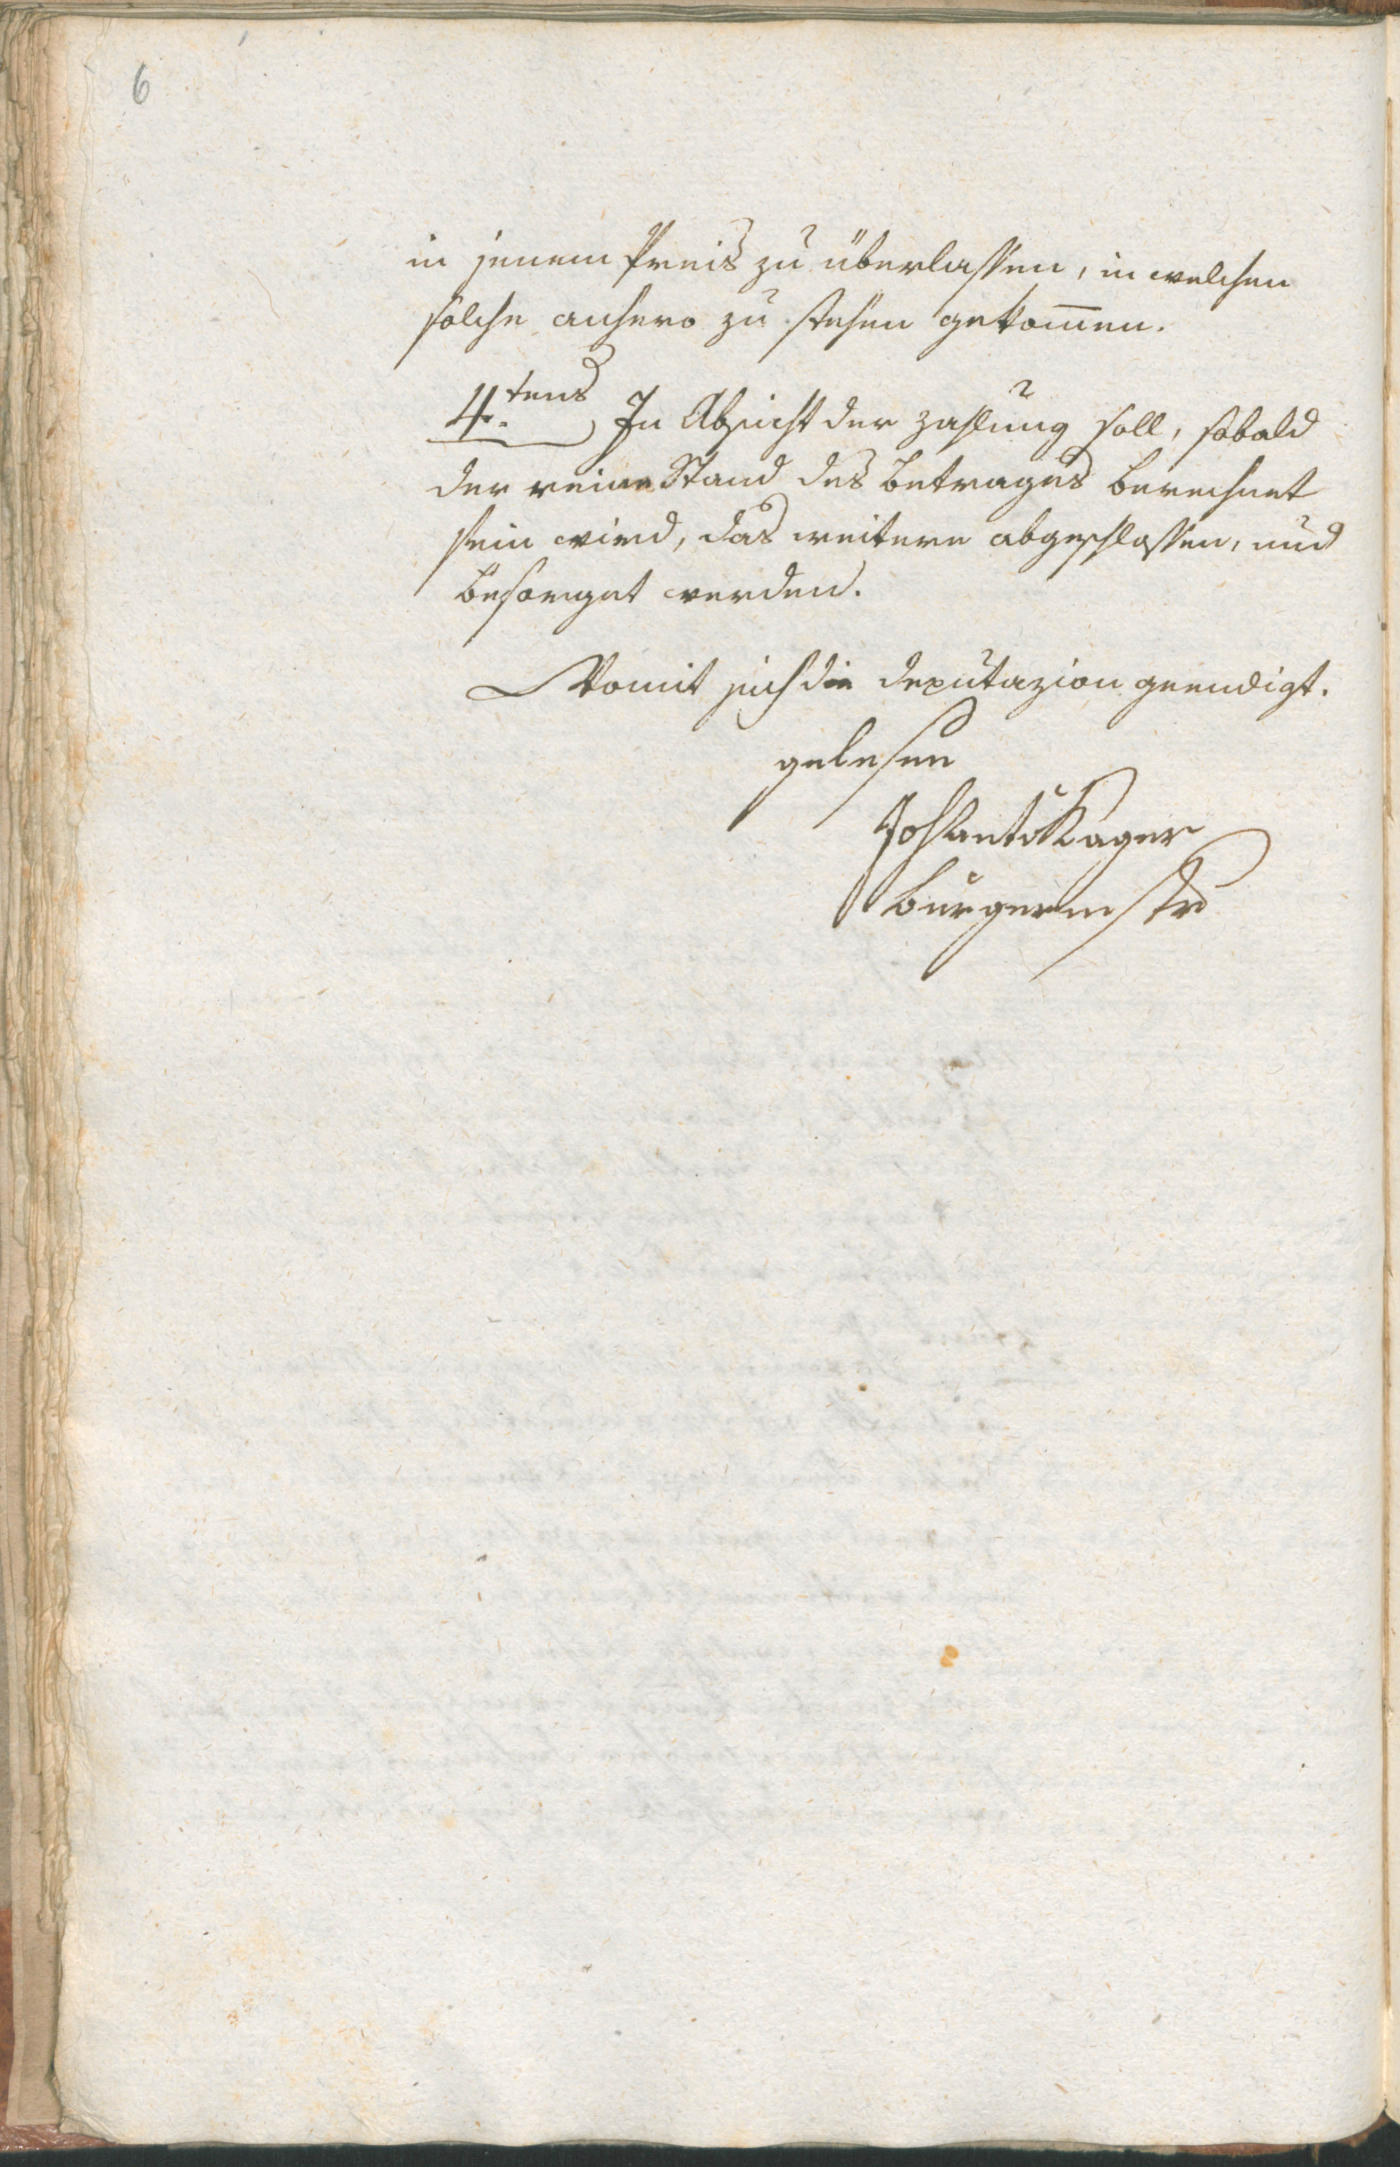 6
in jenem Preis zu überlassen, in welchen
solche anhero zu stehen gekom̅en.
4.tens In Absicht der Zahlung soll, sobald
der reine Stand des Betrages berechnet
sein wird, das weitere abgeschlossen, und
besorget werden.
Womit sich die Deputazion geendigt.
gelesen
Joh Kager
burgermstr